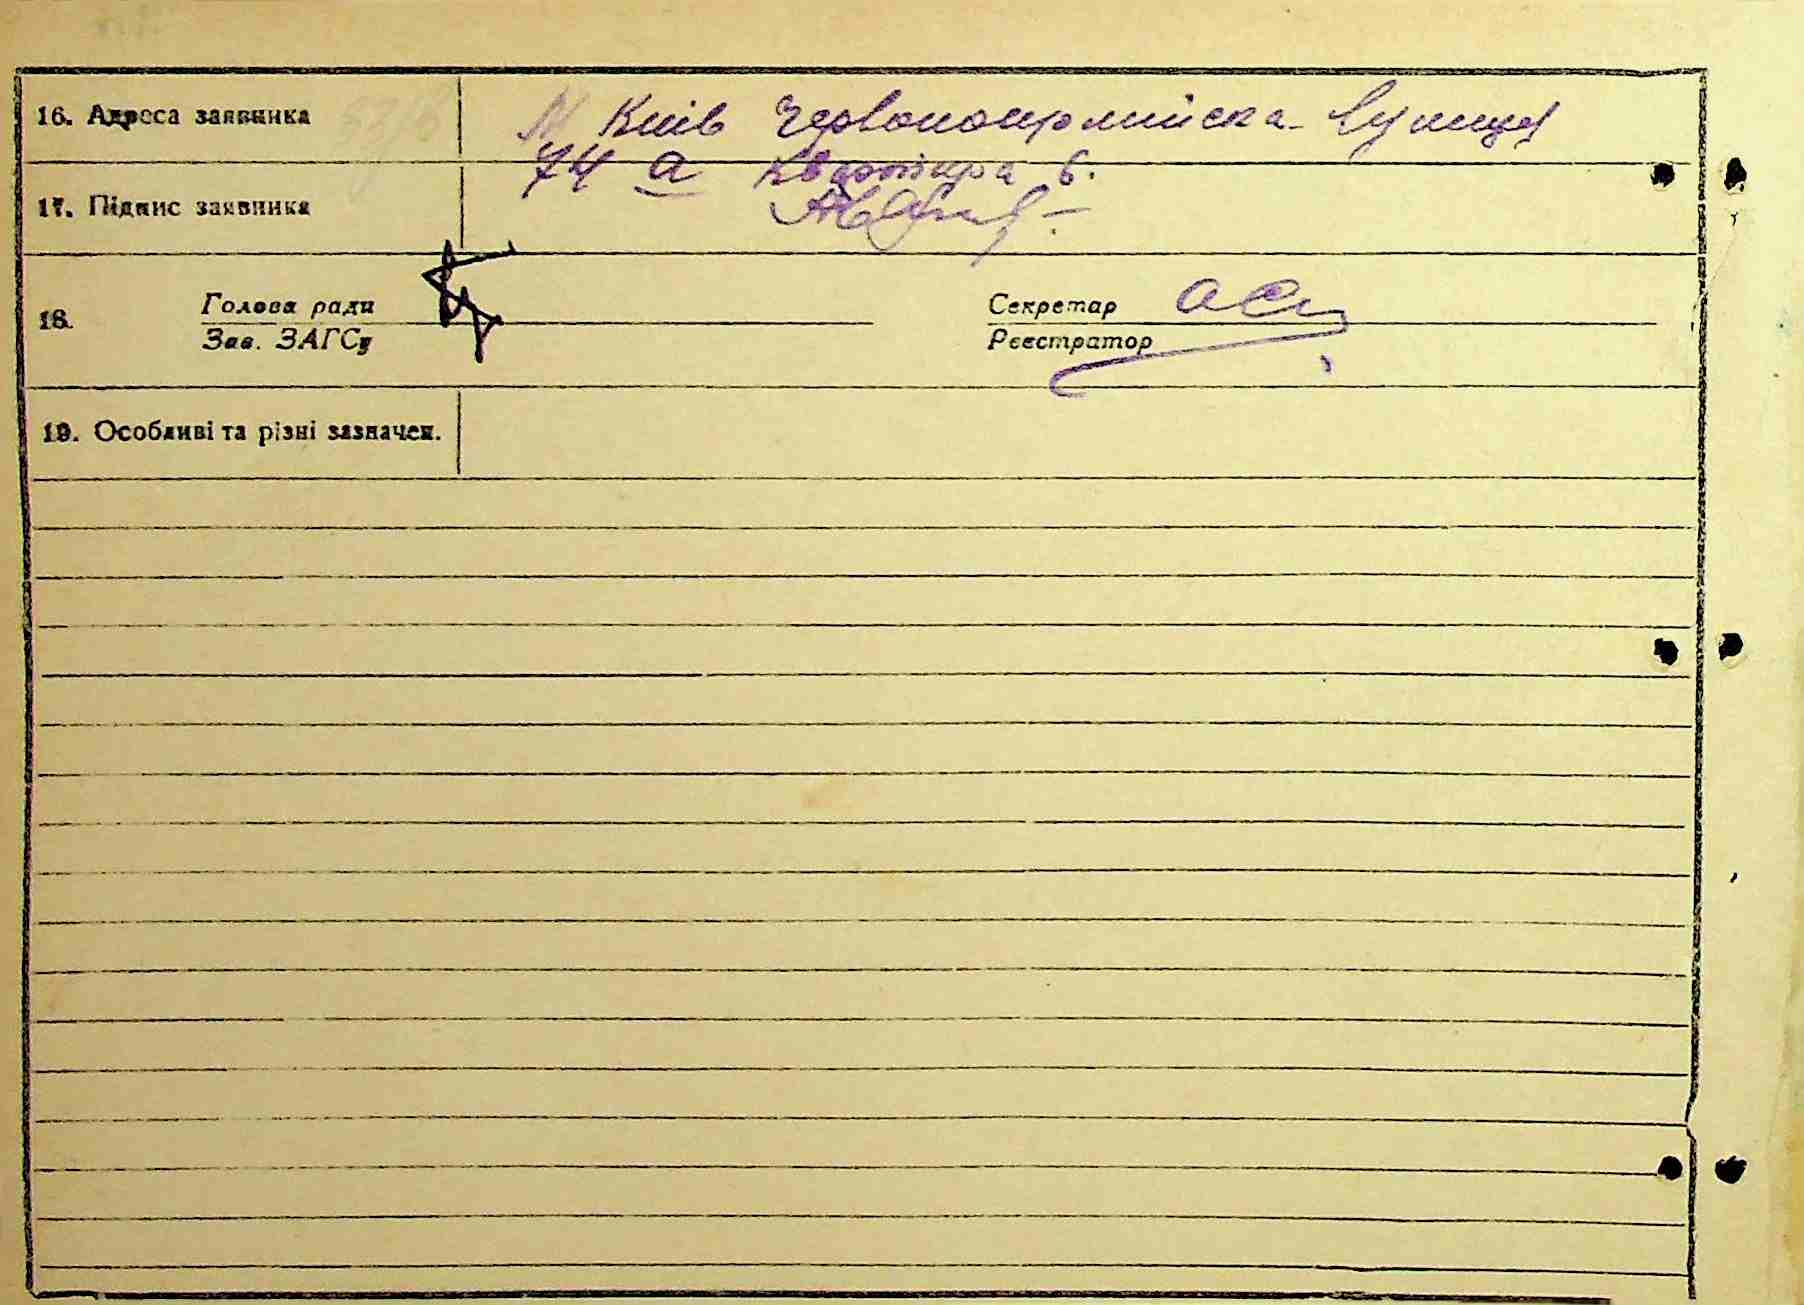 16. Адреса заявника М Київ Червоноармийска вулиця
74 а квартира 6.
17. Підпис заявника
18. Голова ради Секретар
Зав. ЗАГСу Реєстратор
19. Особливі та різні зазначен.